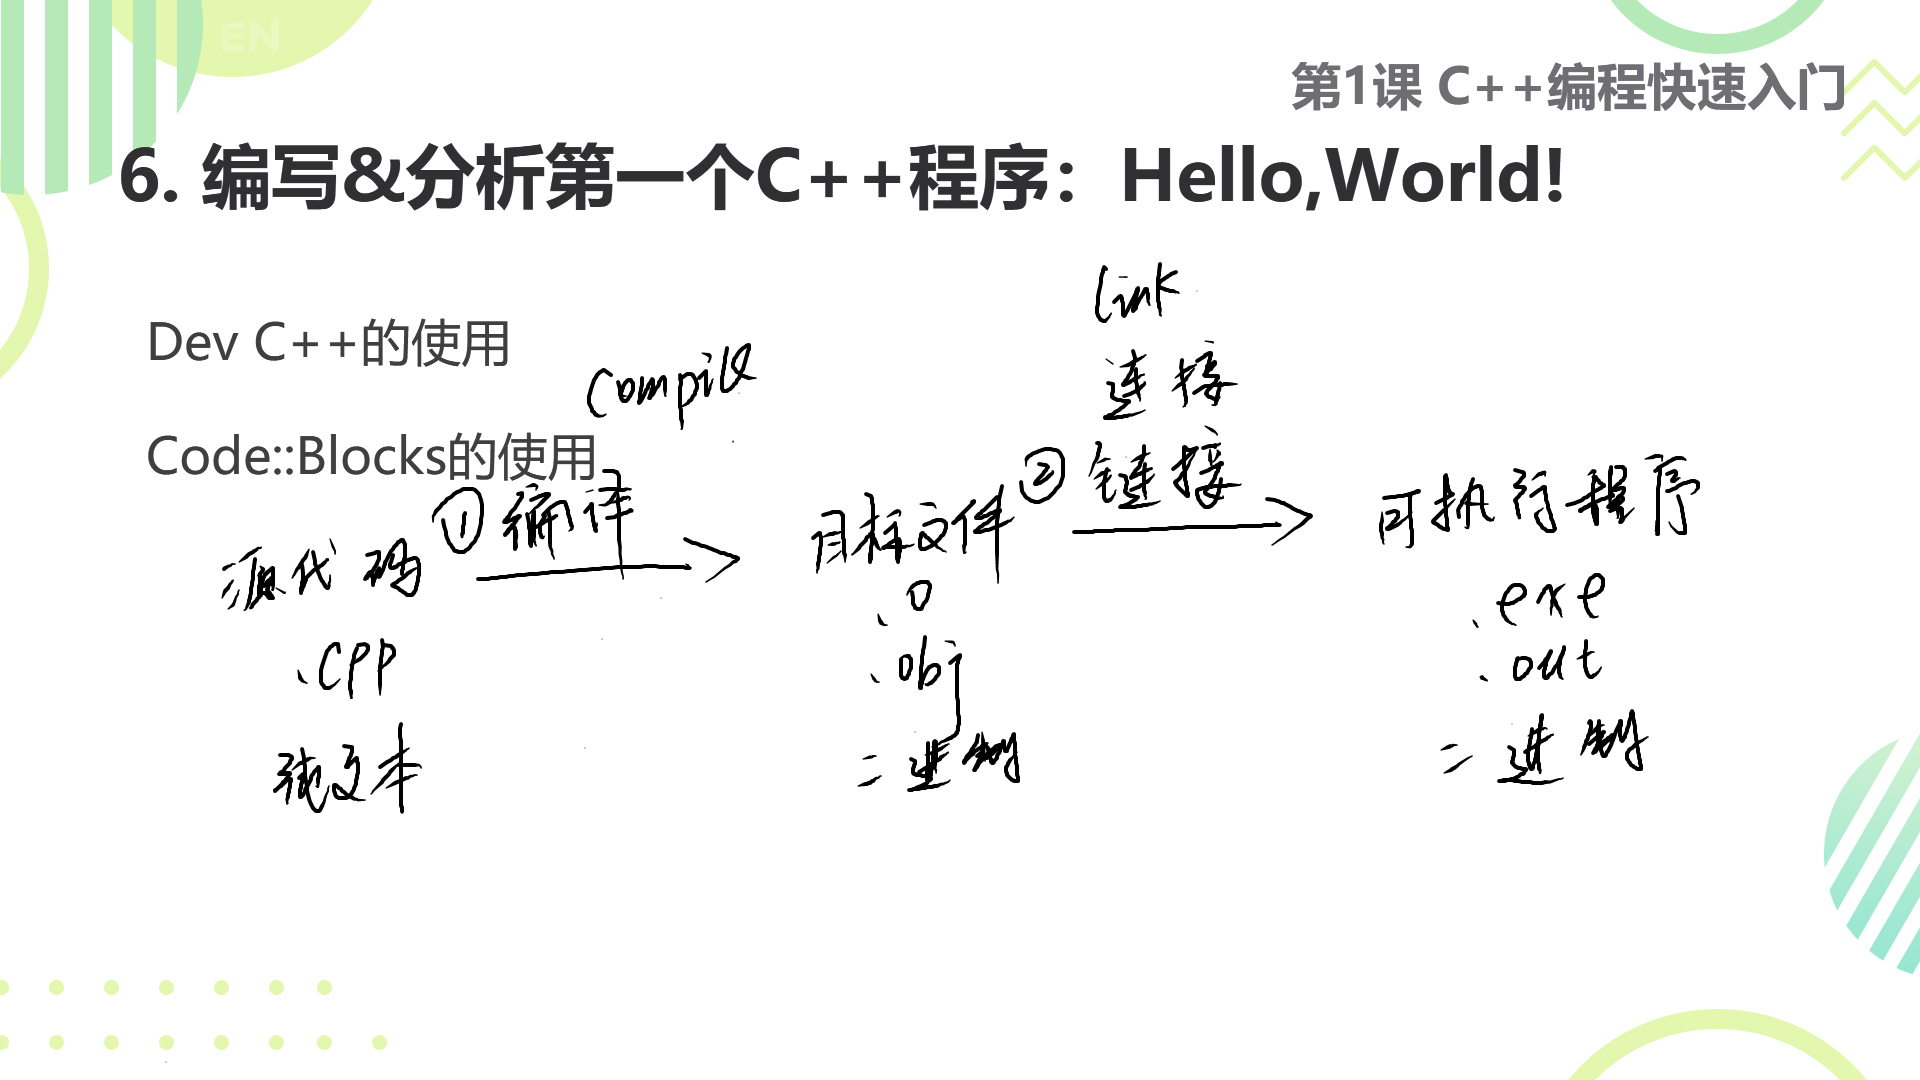 EN
第1课 C++编程快速入门
6. 编写&分析第一个C++程序：Hello,World!
Dev C++的使用
Code::Blocks的使用
compile
link
连接
源代码 ①编译 目标文件 ②链接 可执行程序
.cpp .o .exe
.obj .out
纯文本 二进制 二进制